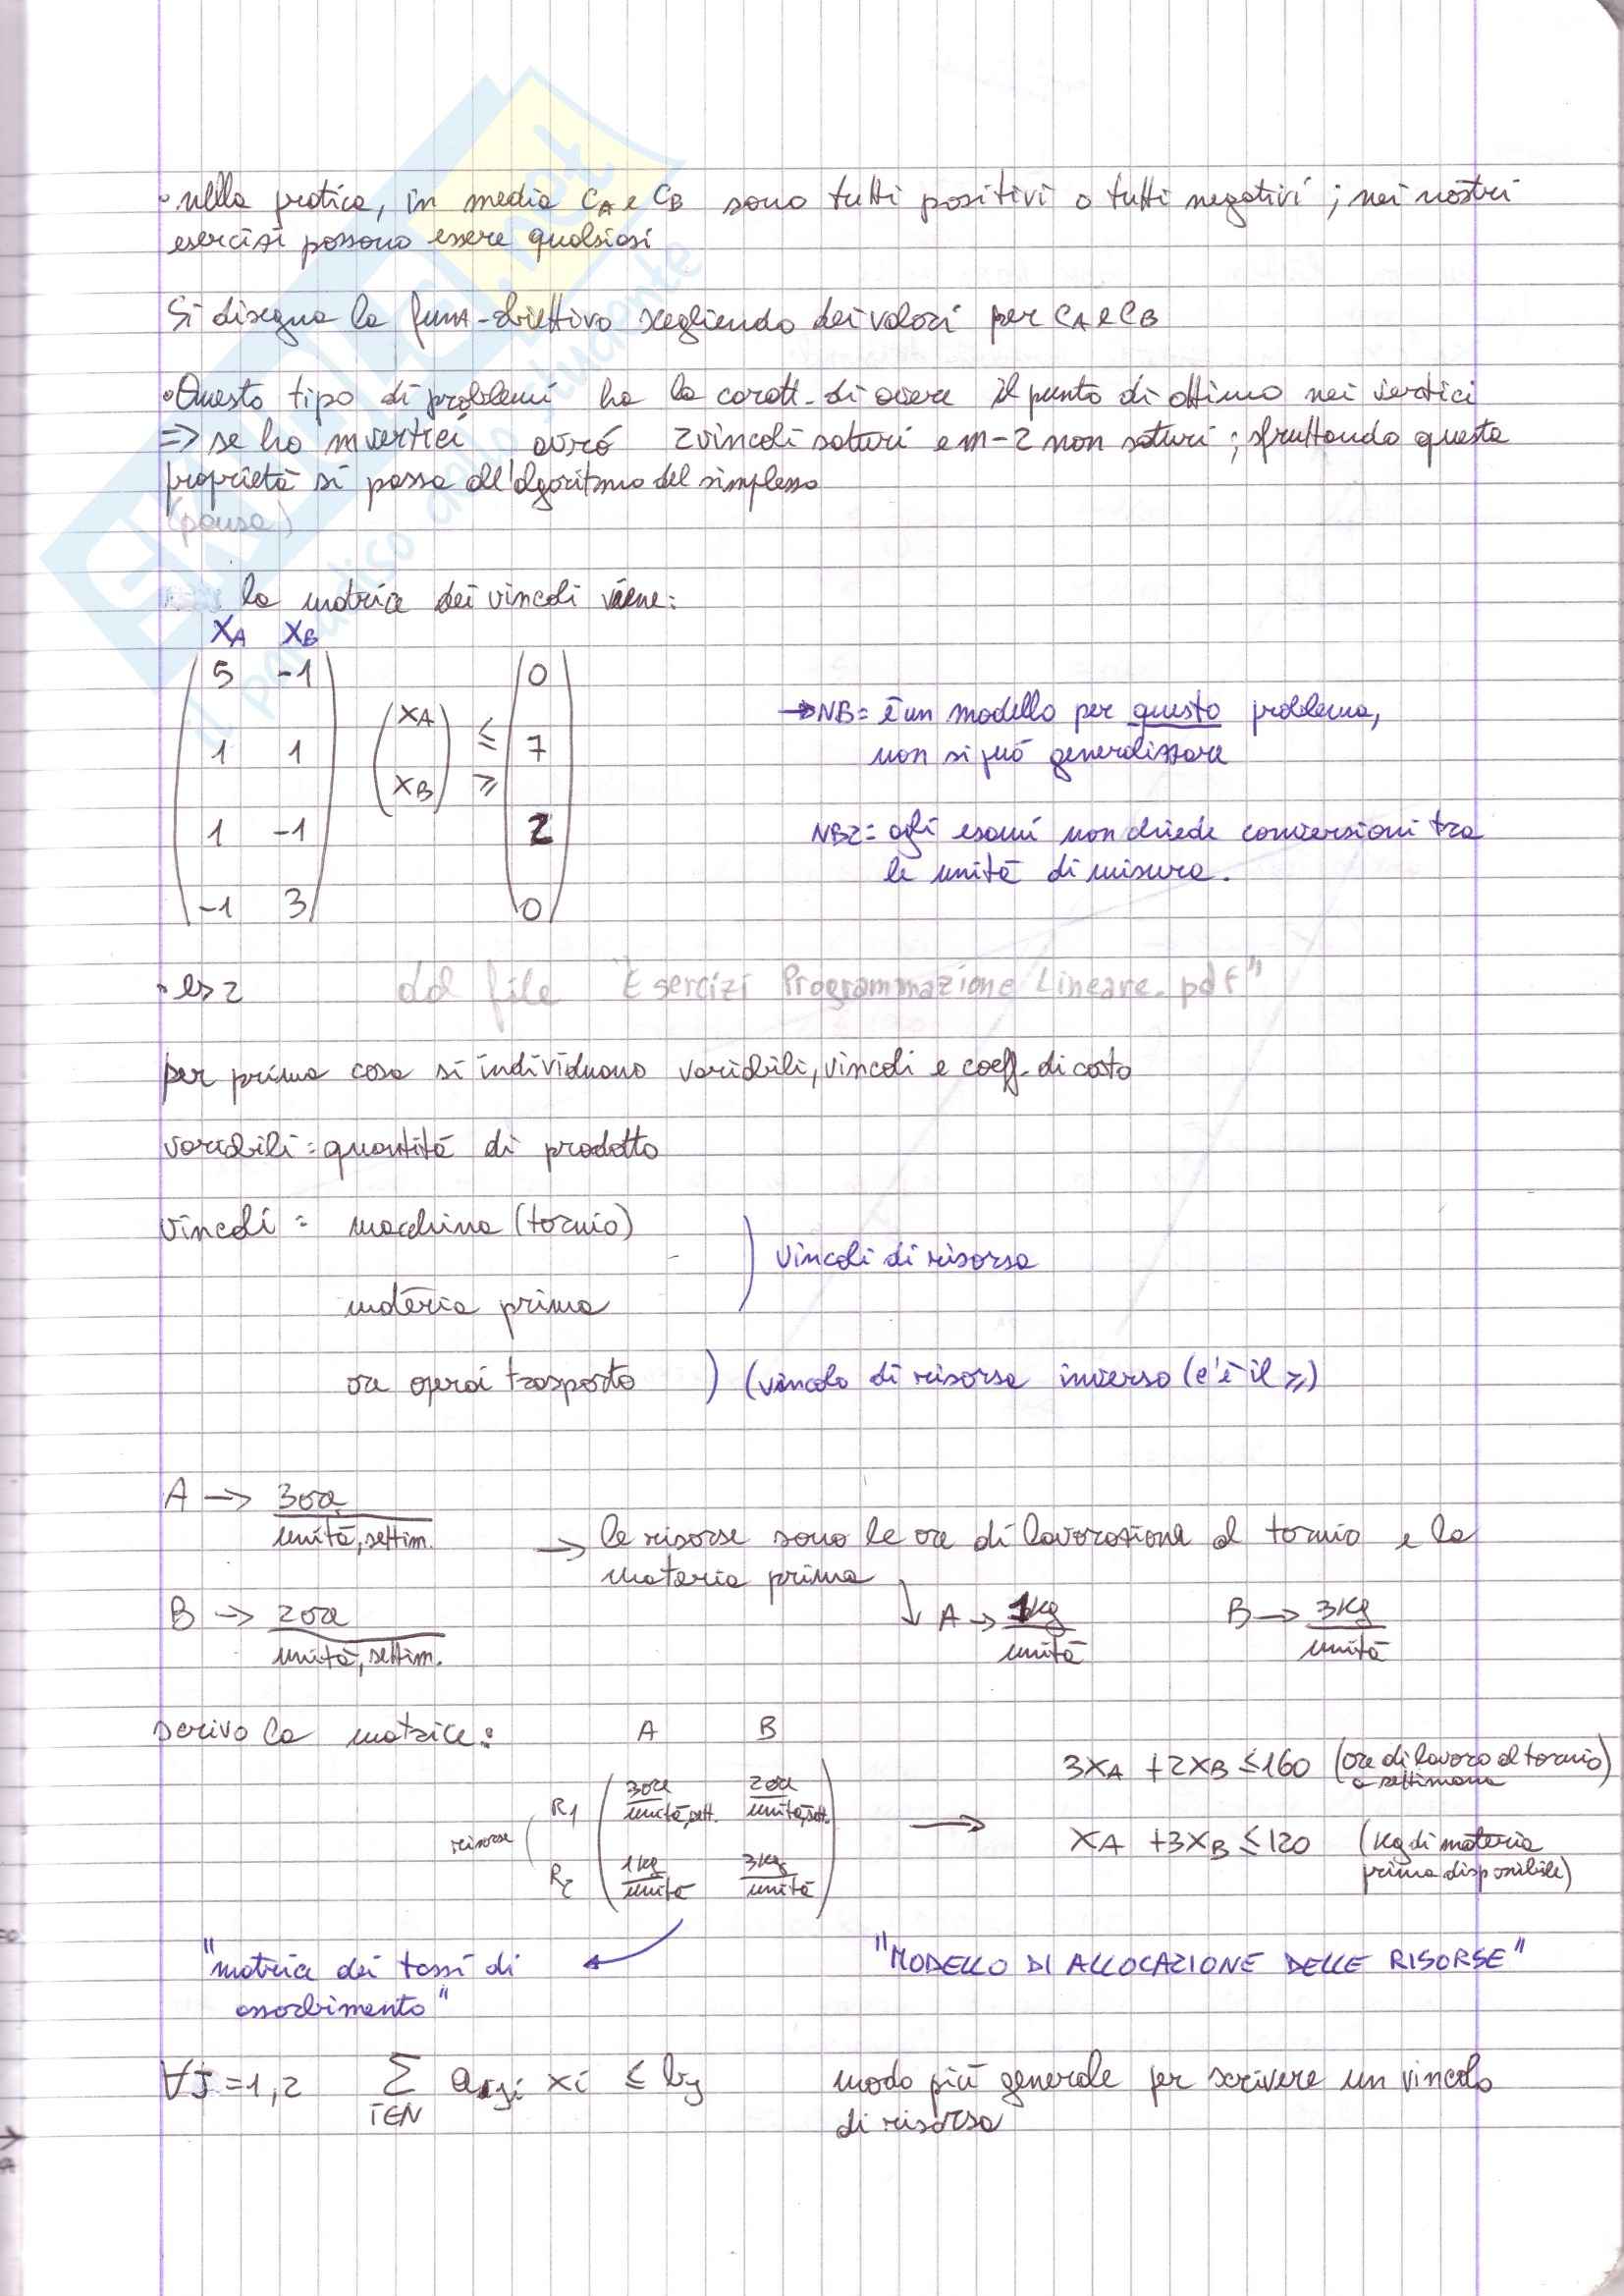 • nella pratica, in media CA e CB sono tutti positivi o tutti negativi; nei nostri
esercizi possono essere qualsiasi
Si disegna la funz-obiettivo scegliendo dei valori per CA e CB
• Questo tipo di problemi ha la caratt. di avere il punto di ottimo nei vertici
=> se ho m vertici avrò 2 vincoli saturi e m-2 non saturi; sfruttando questa
proprietà si passa all'algoritmo del simplesso
(pausa)
la matrice dei vincoli viene:
XA XB
5 -1 0
XA ≤
1 1 7
XB ≥
1 -1 2
-1 3 0
→ NB = è un modello per questo problema,
non si può generalizzare
NB2 = agli esami non chiede conversioni tra
le unità di misura.
• es 2 dal file "Esercizi Programmazione Lineare.pdf"
per prima cosa si individuano variabili, vincoli e coeff. di costo
variabili = quantità di prodotto
vincoli = macchina (tornio)
materia prima
) vincoli di risorsa
ore operai trasporto ) (vincolo di risorsa inverso (c'è il ≥)
A → 3 ore
unità, settim.
→ le risorse sono le ore di lavorazione al tornio e la
materia prima
B → 2 ore
unità, settim.
↓ A → 1 kg
unità
B → 3 kg
unità
scrivo la matrice: A B
risorse
R1 3 ore 2 ore
unità, sett. unità, sett.
R2 1 kg 3 kg
unità unità
→
3XA + 2XB ≤ 160 (ore di lavoro al tornio)
a settimana
XA + 3XB ≤ 120 (kg di materia
prima disponibile)
"matrice dei tassi di
assorbimento"
"MODELLO DI ALLOCAZIONE DELLE RISORSE"
∀J = 1,2 Σ xi ≤ bj modo più generale per scrivere un vincolo
i∈N di risorsa
SKUOLA.net
il paradiso dello studente